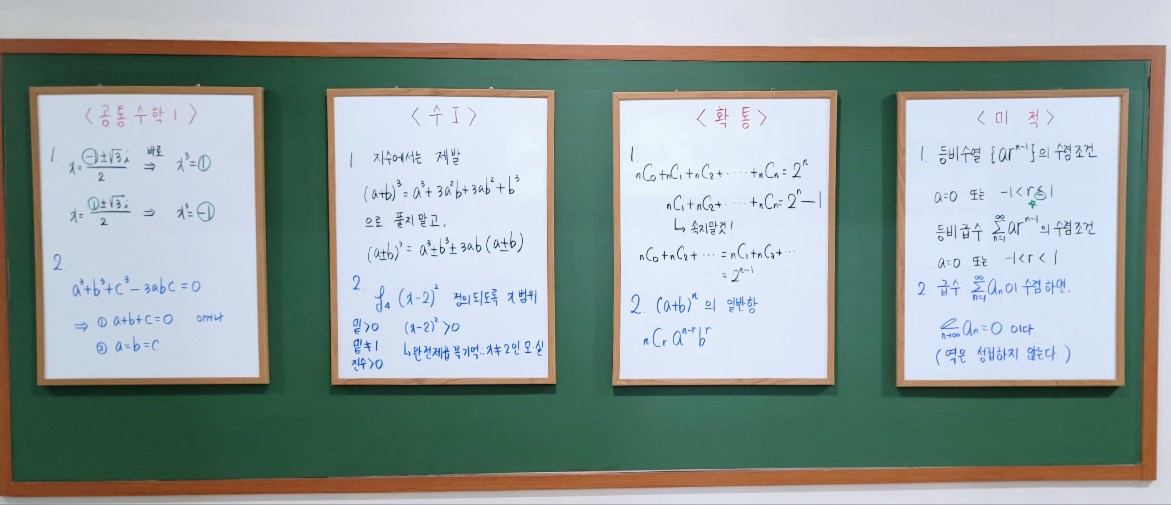 <공통수학 1>
1. x = (-1±√3i)/2 바로 ⇒ x³ = 1
x = (1±√3i)/2 ⇒ x³ = -1
2
a³+b³+c³-3abc=0
⇒ ① a+b+c=0 이거나
② a=b=c
<수 I>
1 지수에서는 제발
(a+b)³ = a³+3a²b+3ab²+b³
으로 풀지 말고,
(a±b)³ = a³±b³±3ab(a±b)
2. (x-2)² 정의되도록 x 범위
밑>0 (x-2)²>0
밑≠1 ↳완전제곱 꼭기억.. x≠2인 모.실
진수>0
<확통>
1. nC0+nC1+nC2+····+nCn=2ⁿ
nC1+nC2+····+nCn=2ⁿ-1
↳ 속지말것!
nC0+nC2+··· = nC1+nC3+···
= 2ⁿ⁻¹
2. (a+b)ⁿ의 일반항
nCr aⁿ⁻ʳbʳ
<미적>
1. 등비수열 {arⁿ⁻¹}의 수렴조건
a=0 또는 -1<r≤1
등비급수 ∑(n=1,∞) arⁿ⁻¹의 수렴조건
a=0 또는 -1<r<1
2. 급수 ∑(n=1,∞) an이 수렴하면,
n→∞ an=0 이다
(역은 성립하지 않는다.)